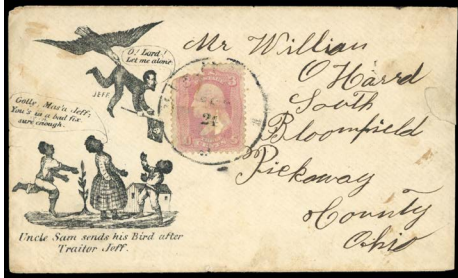 O! Lord!
Let me alone
JEFF
Golly, Mas'a Jeff,
You's in a bad fix
sure enough.
Uncle Sam sends his Bird after
Traitor Jeff.
21
3 3
Mr William
O Harrd
South
Bloomfield
Pickaway
County
Ohio